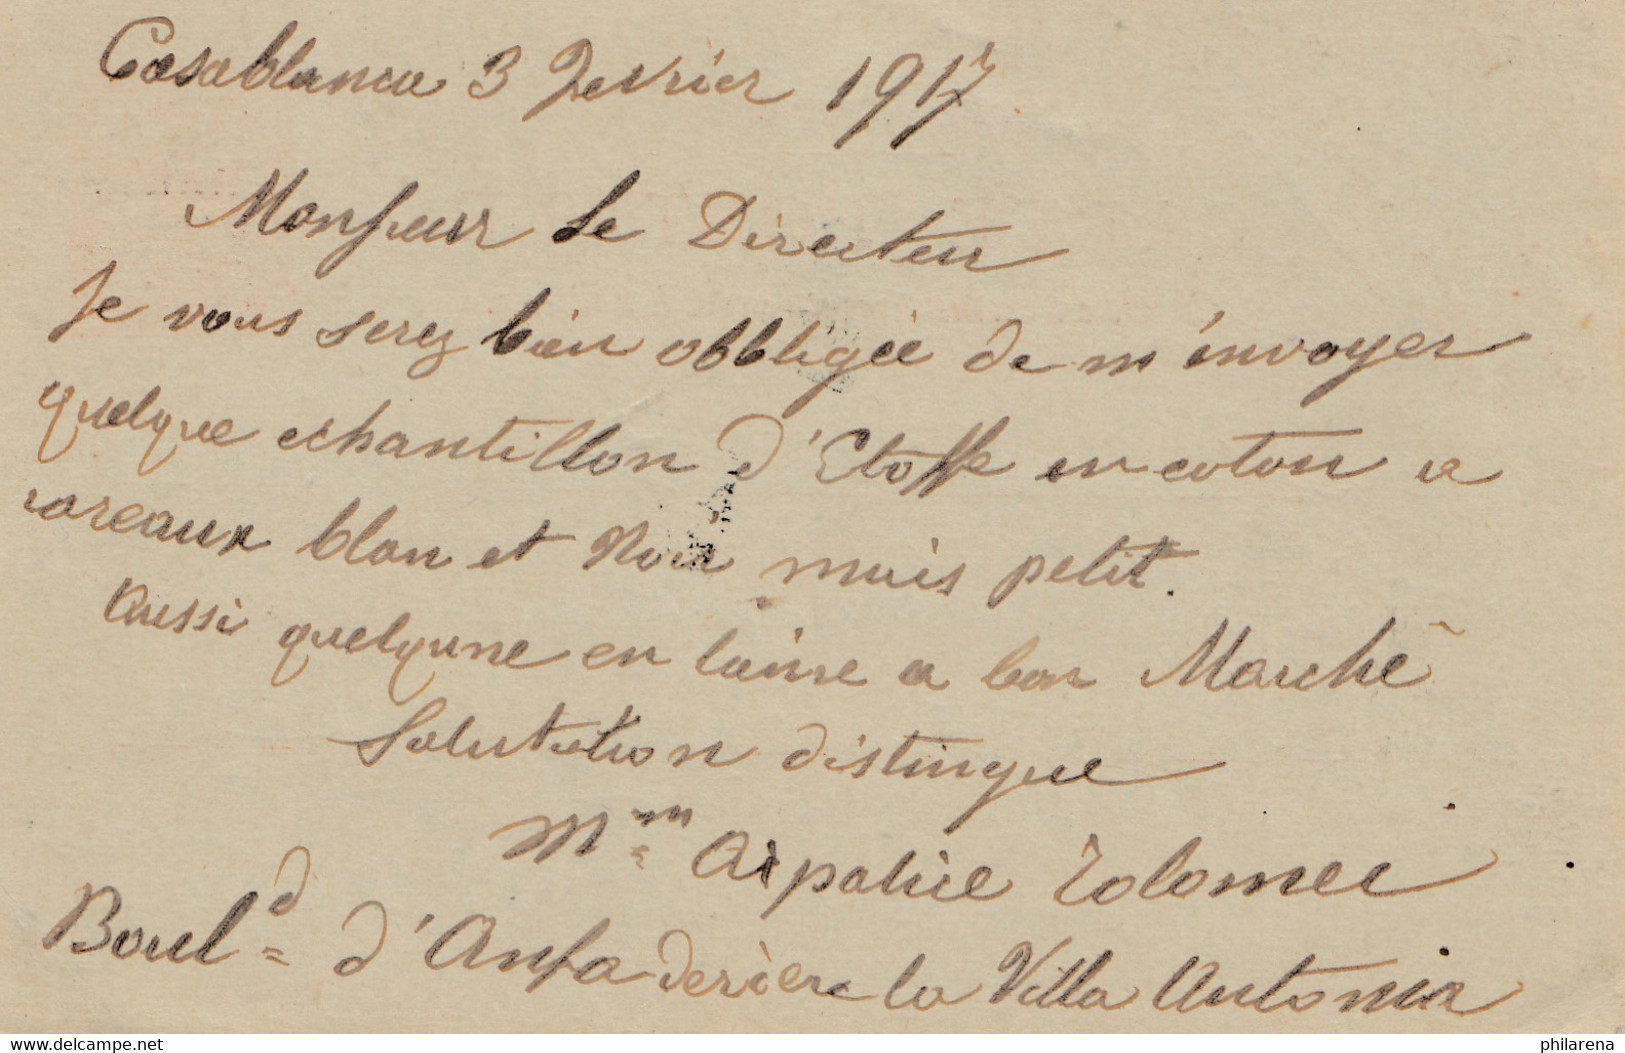 Casablanca 3 Fevrier 1917
Monsieur Le Directeu
Je vous serez bien obbligée de m'envoyer
quelque echantillon d'Etoffe en coton a
careaux blan et Noir mais petit.
Aussi quelqune en laine a bon Marché
Salutation distingue
Mm Tolomei
Bould d'Anfa deriere la Villa Antonia
www.delcampe.net
philarena